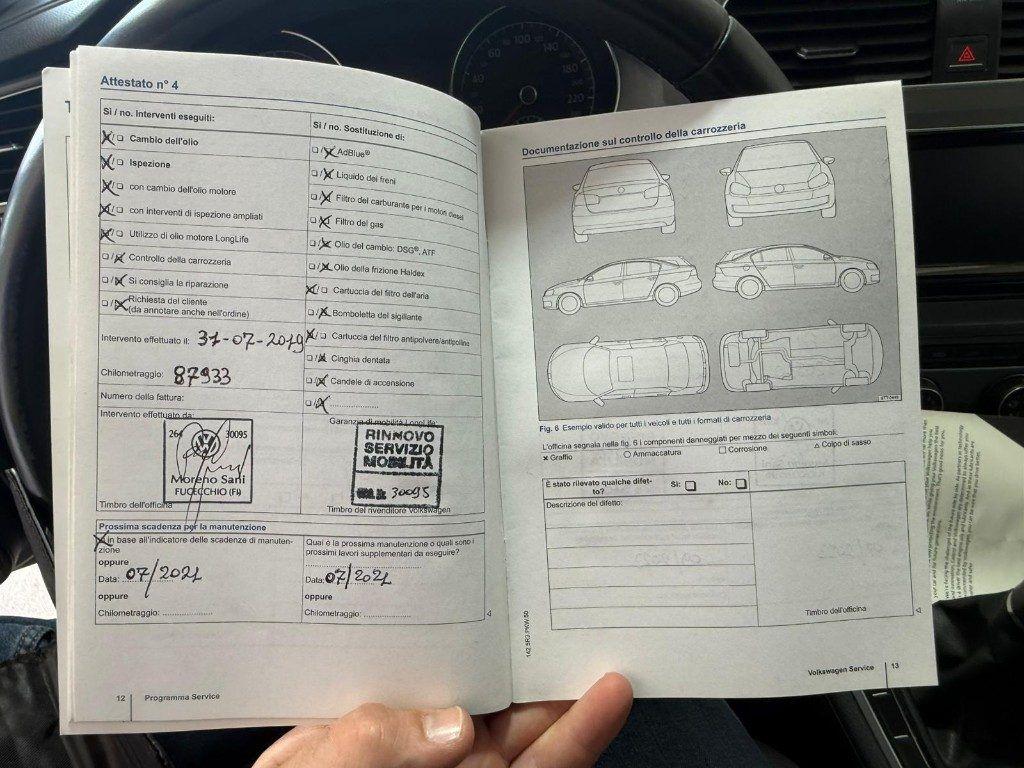 Attestato n° 4
Sì / no. Interventi eseguiti:
X/❏ Cambio dell'olio
X/❏ Ispezione
X/❏ con cambio dell'olio motore
X/❏ con interventi di ispezione ampliati
X/❏ Utilizzo di olio motore LongLife
❏/X Controllo della carrozzeria
❏/X Si consiglia la riparazione
❏/X Richiesta del cliente
(da annotare anche nell'ordine)
Intervento effettuato il: 31-07-2019
Chilometraggio: 87933
Numero della fattura:
Intervento effettuato da:
264 30095
Moreno Sani
FUCECCHIO (FI)
Timbro dell'officina
Sì / no. Sostituzione di:
❏/X AdBlue®
❏/X Liquido dei freni
❏/X Filtro del carburante per i motori diesel
❏/X Filtro del gas
❏/X Olio del cambio: DSG®, ATF
❏/X Olio della frizione Haldex
X/❏ Cartuccia del filtro dell'aria
❏/X Bomboletta del sigillante
X/❏ Cartuccia del filtro antipolvere/antipolline
❏/X Cinghia dentata
❏/X Candele di accensione
❏/X ....................
Garanzia di mobilità LongLife
RINNOVO
SERVIZIO
MOBILITÀ
30095
Timbro del rivenditore Volkswagen
Prossima scadenza per la manutenzione
X in base all'indicatore delle scadenze di manuten-
zione
oppure
Data: 07/2021
oppure
Chilometraggio: ................
Qual è la prossima manutenzione o quali sono i
prossimi lavori supplementari da eseguire?
Data: 07/2021
oppure
Chilometraggio: ................
12 Programma Service
Documentazione sul controllo della carrozzeria
Fig. 6 Esempio valido per tutti i veicoli e tutti i formati di carrozzeria
L'officina segnala nella fig. 6 i componenti danneggiati per mezzo dei seguenti simboli:
x Graffio ○ Ammaccatura □ Corrosione △ Colpo di sasso
È stato rilevato qualche difet-
to? Sì: ❏ No: ❏
Descrizione del difetto:
Timbro dell'officina
142.5R3.PKW.50
Volkswagen Service 13
60
80
100
120
140
180
220